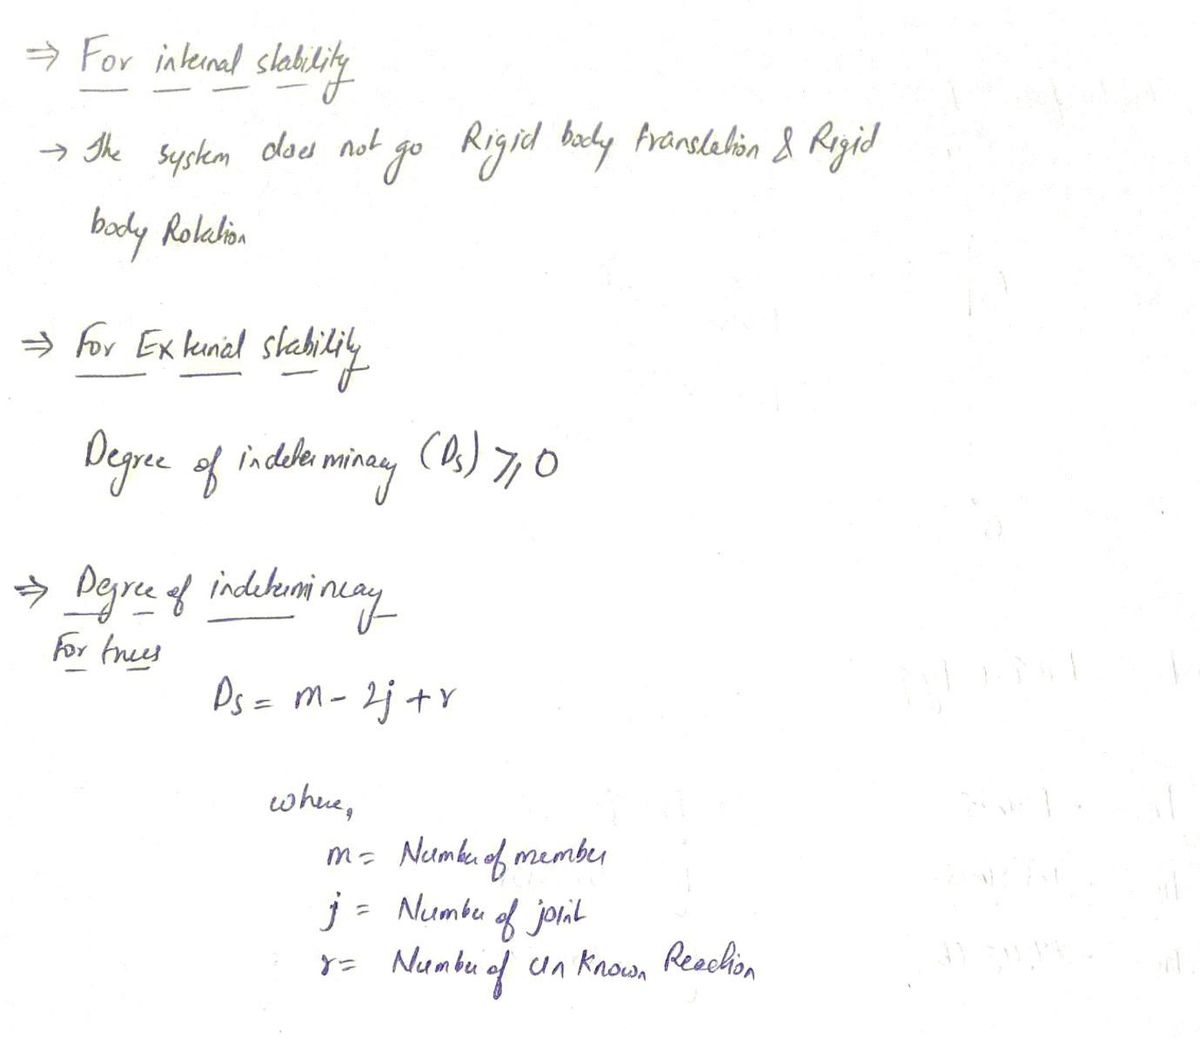 ⇒ For internal stability
→ The system does not go Rigid body translation & Rigid
body Rotation
⇒ For External stability
Degree of indeterminacy (Ds) ⩾ 0
⇒ Degree of indetermincay
For truss
Ds = m - 2j + r
where,
m = Number of member
j = Number of joint
r = Number of un known Reaction